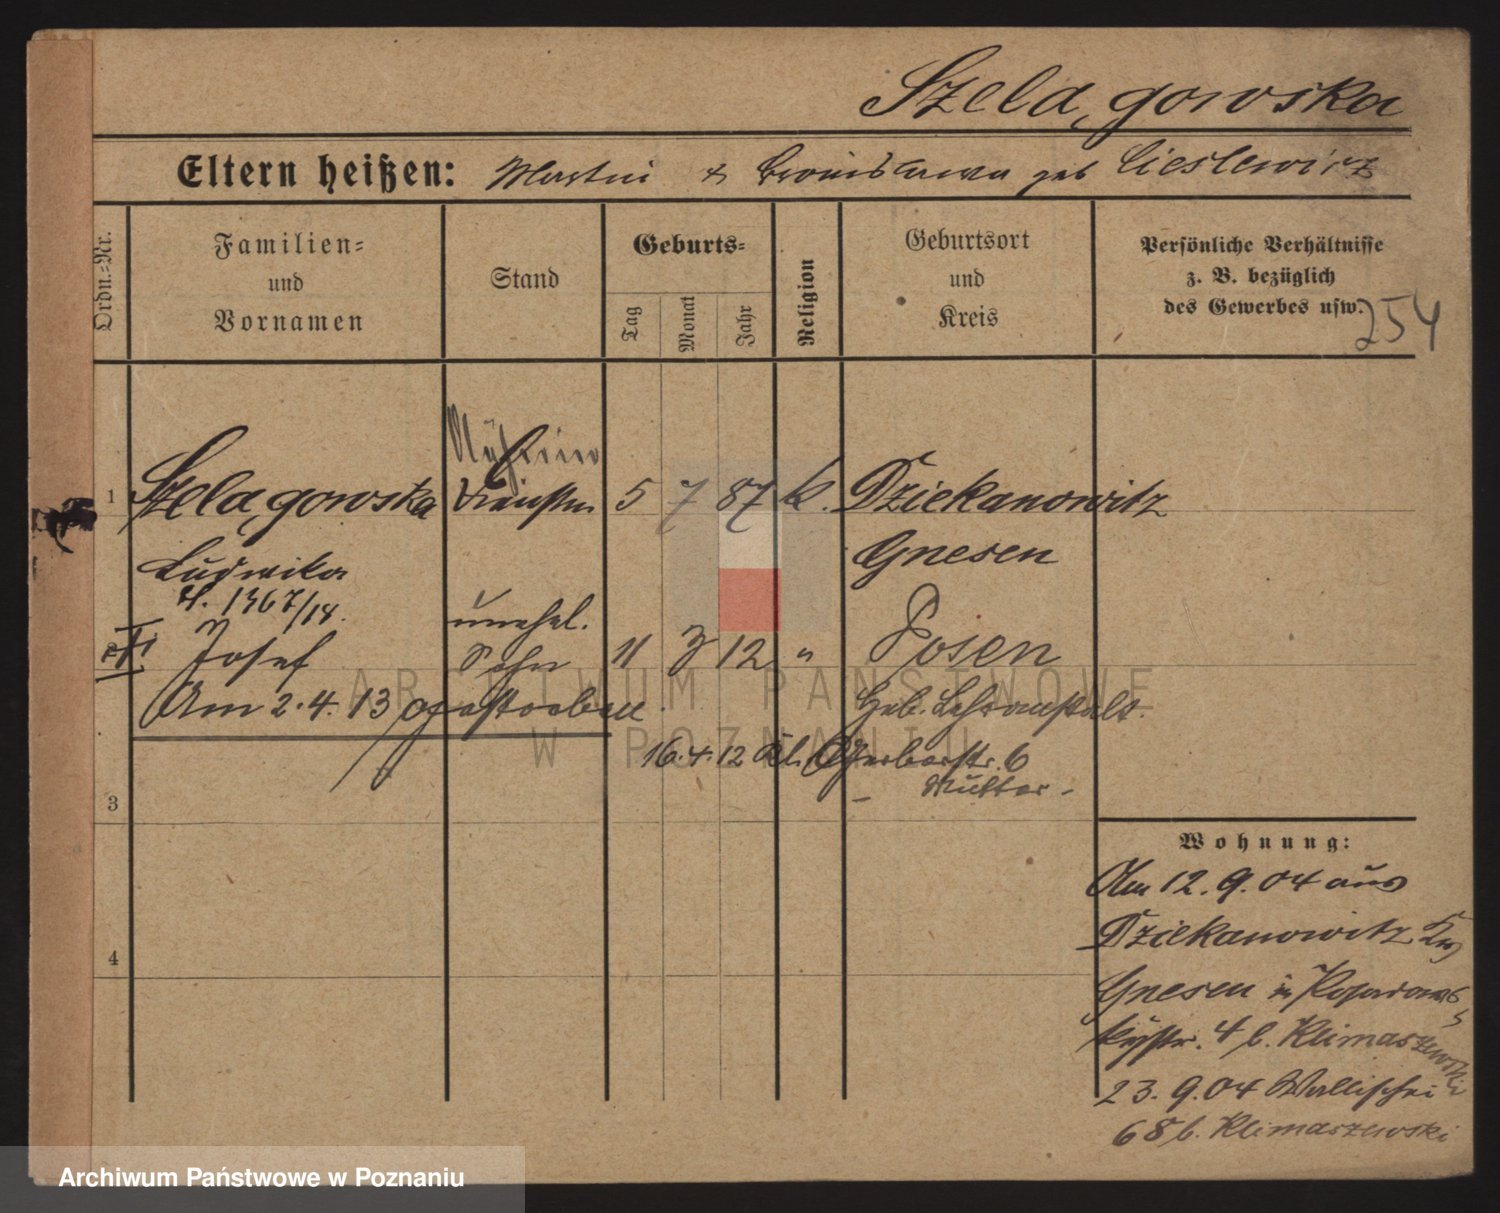 Szelągowska
Eltern heißen: Martin & Bronisława geb Cieslewicz
Ordn.-Nr.
Familien-
und
Vornamen
Stand
Geburts-
Tag
Monat
Jahr
Religion
Geburtsort
und
Kreis
Persönliche Verhältnisse
z. B. bezüglich
des Gewerbes usw.
254
Nähterin
1 Szelągowska 5 7 87 k. Dziekanowitz
Ludwika Gnesen
1367/14.
unehel.
2 Josef Sohn 11 3 12 " Posen
Am 2.4.13 gestorben Heb. Lehranstalt.
16.4.12 Kl. Gerberstr. 6
- Mutter -
3
Wohnung:
Am 12.9.04 aus
Dziekanowitz Krs
Gnesen in
4 b. Klimaszewski
23.9.04 Wallischei
68 b. Klimaszewski
4
ARCHIWUM PAŃSTWOWE
W POZNANIU
Archiwum Państwowe w Poznaniu